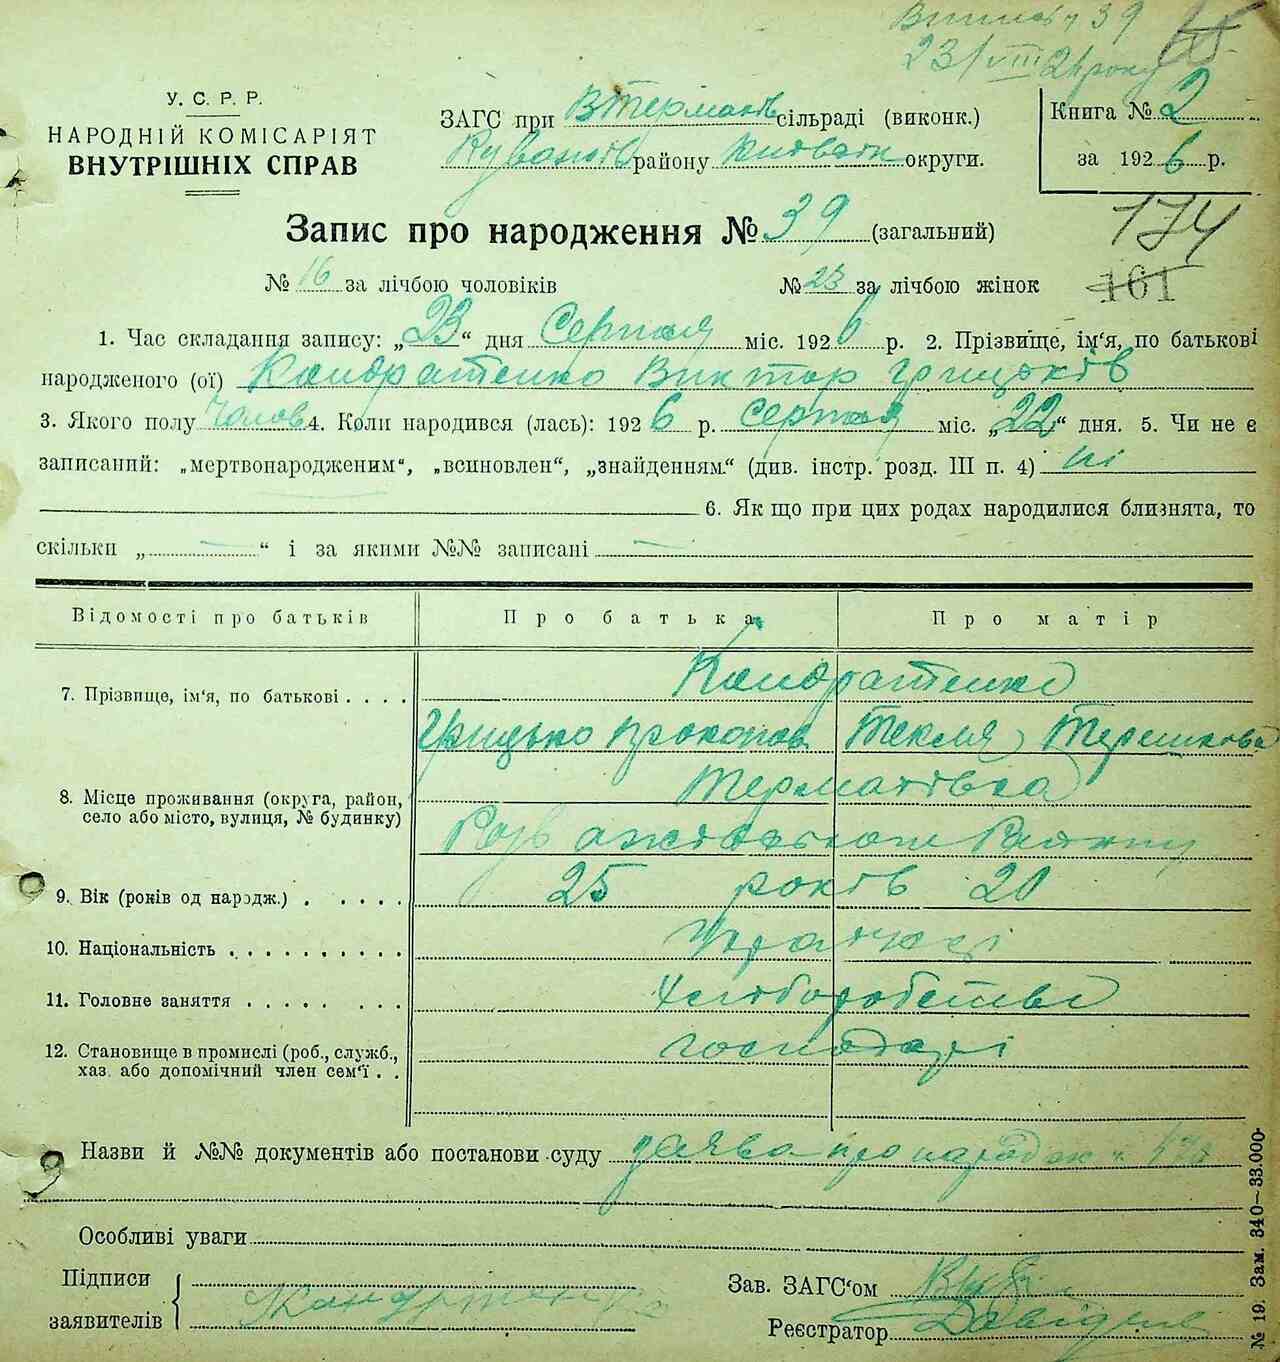 39
23/VIII 26 року
У. С. Р. Р.
НАРОДНІЙ КОМІСАРІЯТ
ВНУТРІШНІХ СПРАВ
ЗАГС при сільраді (виконк.)
району округи.
Книга № 2
за 1926 р.
Запис про народження № 39 (загальний)
174
№ 16 за лічбою чоловіків № 23 за лічбою жінок 161
1. Час складання запису: „23“ дня Серпня міс. 1926 р. 2. Прізвище, ім'я, по батькові
народженого (ої) Кондратенко Виктор Грицьків
3. Якого полу Чолов 4. Коли народився (лась): 1926 р. Серпня міс. „22“ дня. 5. Чи не є
записаний: „мертвонародженим“, „всиновлен“, „знайденням“ (див. інстр. розд. III п. 4) ні
6. Як що при цих родах народилися близнята, то
скільки „ — “ і за якими №№ записані —
Відомості про батьків Про батька Про матір
7. Прізвище, ім'я, по батькові . . . . Кондратенко
Грицько Прокопов Текля Терешкова
8. Місце проживання (округа, район, Термахівка
село або місто, вулиця, № будинку) Району
9. Вік (років од народж.) . . . . . 25 років 20
10. Національність . . . . . . . . . . Українці
11. Головне заняття . . . . . . . . Хліборобство
12. Становище в промислі (роб., служб., господарі
хаз. або допомічний член сем'ї . .
Назви й №№ документів або постанови суду заява про
Особливі уваги
Підписи
заявителів Кондратенко
Зав. ЗАГС'ом
Реєстратор
№ 19. Зам. 340—33.000